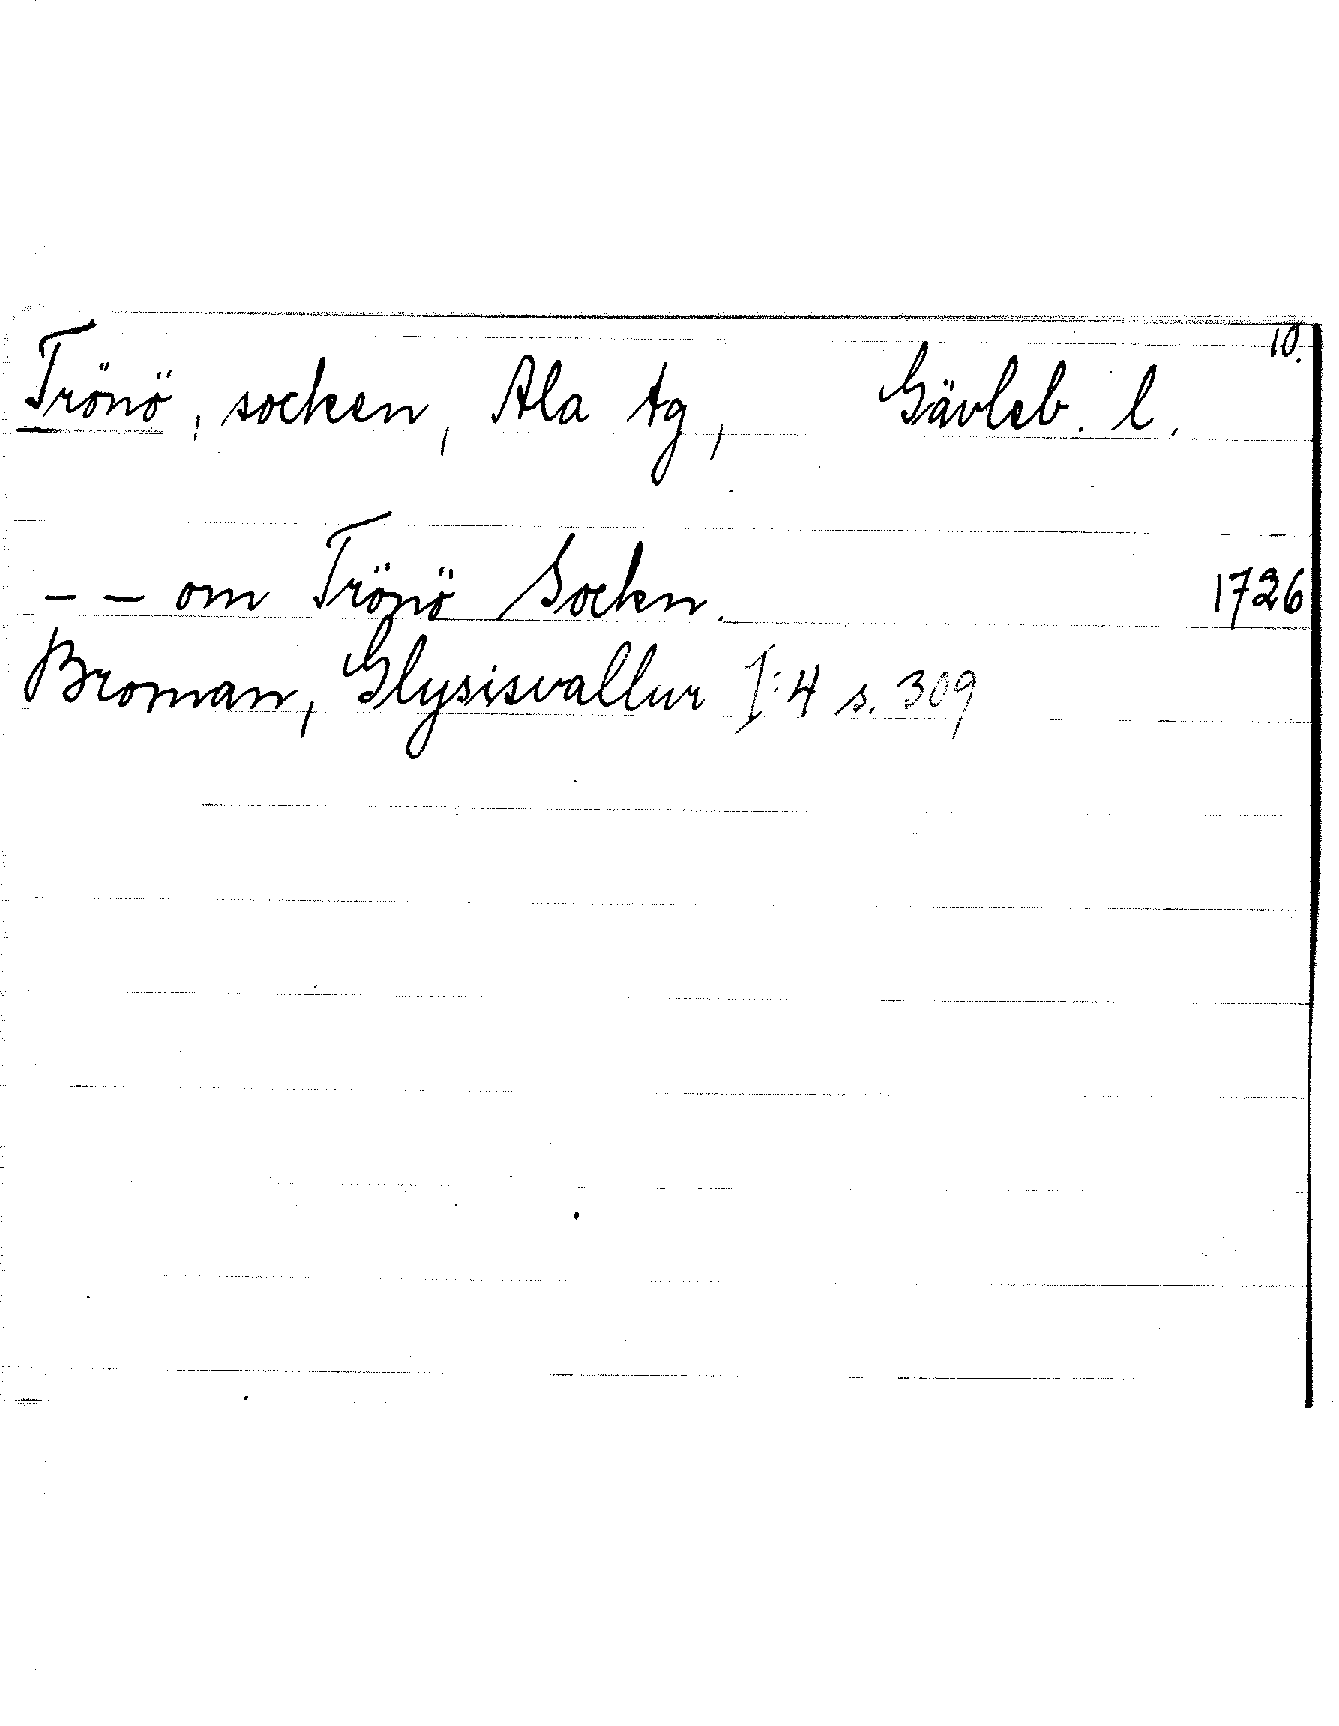 10.
Trönö, socken, Ala tg, Gävleb. l.
– – om Trönö Sockn. 1726
Broman, Glysisvallur I:4 s. 309